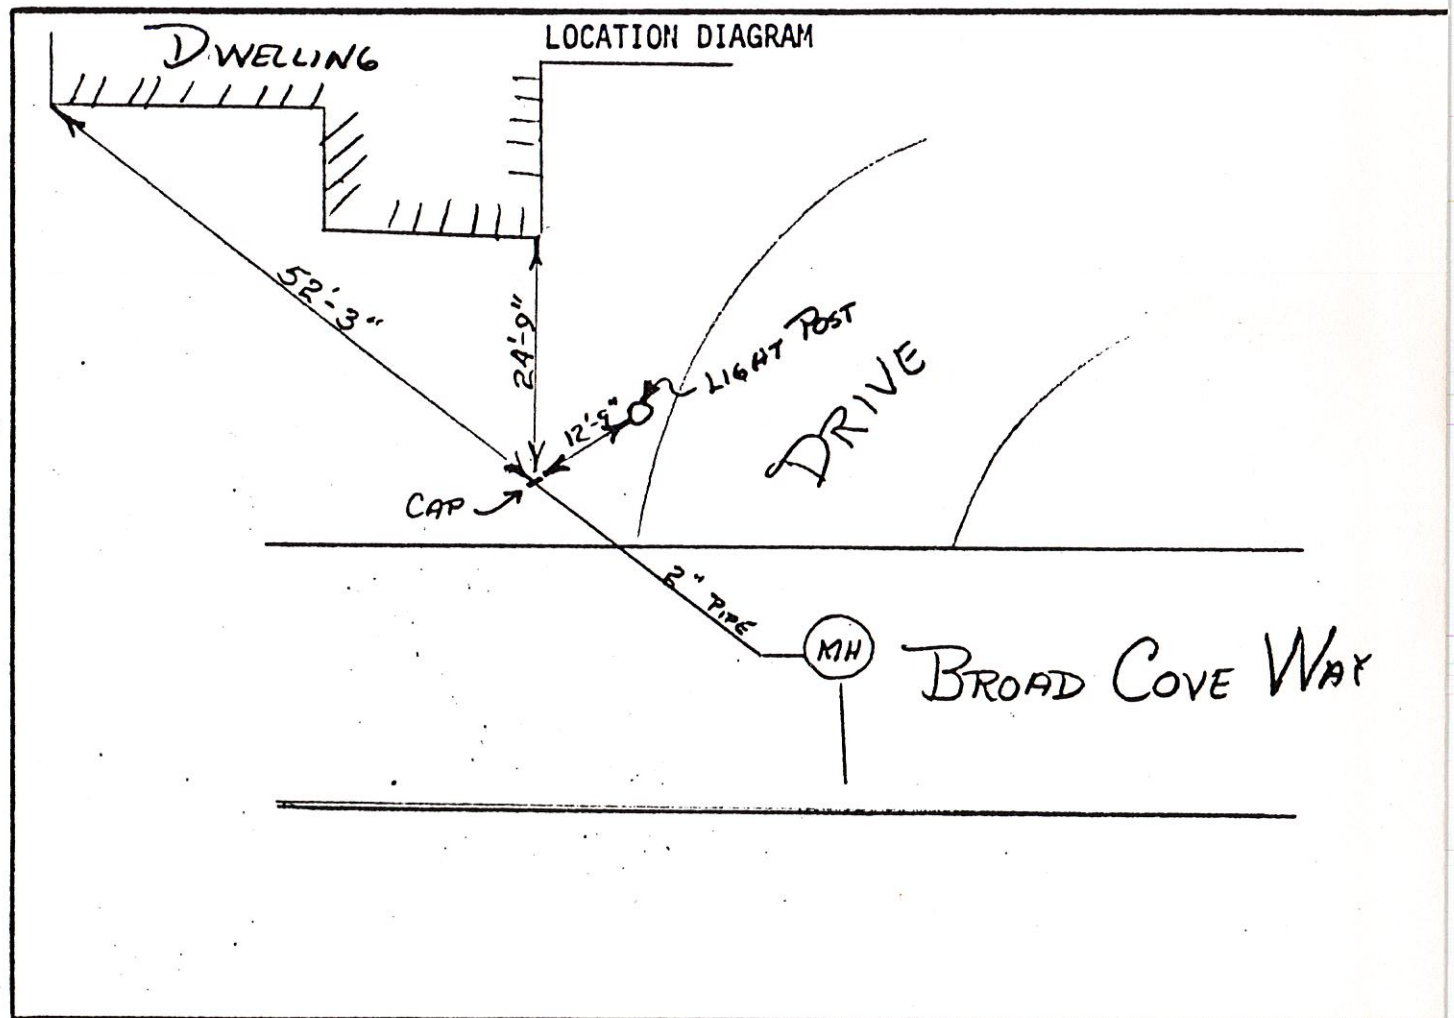 LOCATION DIAGRAM
DWELLING
52'-3"
24'-9"
12'-9"
LIGHT POST
DRIVE
CAP
2" PIPE
MH
BROAD COVE WAY